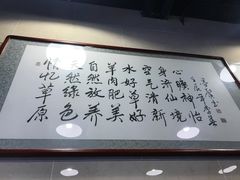 情忆草原
天然绿色
自然放养
羊肉肥美
水好草好
空气清新
身济仙境
心旷神怡